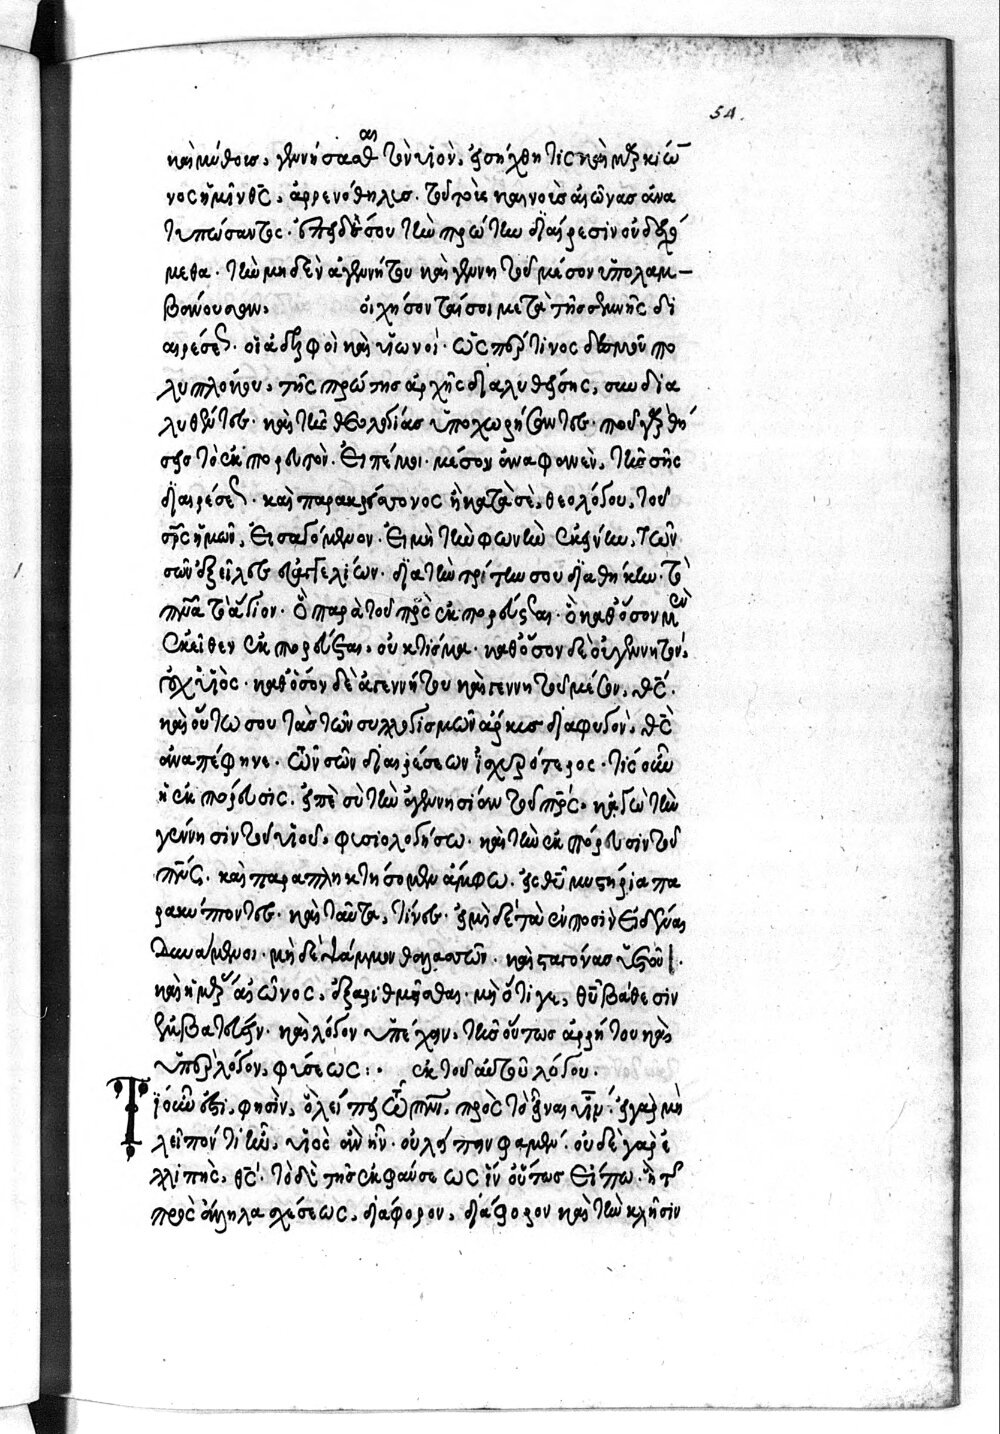 54.
καὶ μύθοις, γεννήσασθαι τὸν υἱὸν. εἰσήχθη τίς καὶ μαρκίω
νος ἡμῖν θς, ἀρρενόθηλυς. τοὺς καινοὺς αἰῶνας ἀνα
τυπώσαντος. ἐπεὶ δέ σου τὴν πρώτην διαίρεσιν οὐ δεχό
μεθα. τὴν μηδὲν ἀγεννήτου καὶ γεννητοῦ μέσον ὑπολαμ
βάνουσαν. οἰχήσονταί σοι μετὰ τῆς σεμνῆς δι
αιρέσεως. οἱ ἀδελφοὶ καὶ υἱωνοί. ὥσπερ τινὸς δεσμοῦ πο
λυπλόκου, τῆς πρώτης ἀρχῆς διαλυθείσης, συνδια
λυθέντες. καὶ τῆς θεολογίας ὑποχωρήσαντες. ποῦ γὰρ θή
σεις τὸ ἐκπορευτὸν. εἰπέ μοι. μέσον ἀναφανὲν, τῆς σῆς
διαιρέσεως. καὶ παρὰ κρείσσονος ἢ κατὰ σὲ, θεολόγου, τοῦ
σρς ἡμῶν, εἰσαγόμενον. εἰ μὴ τὴν φωνὴν ἐκείνην, τῶν
σῶν ἐξεῖλες εὐαγγελίων. διὰ τὴν τρίτην σου διαθήκην. τὸ
πνα τὸ ἅγιον. ὃ παρὰ τοῦ πρς ἐκπορεύεται. ὃ καθόσον μὲν
ἐκεῖθεν ἐκπορεύεται, οὐ κτίσμα. καθόσον δὲ οὐ γεννητόν,
οὐχ υἱός. καθόσον δὲ ἀγεννήτου καὶ γεννητοῦ μέσον, θς.
καὶ οὕτω σου τὰς τῶν συλλογισμῶν ἄρκυς διαφυγὸν, θς
ἀναπέφηνε. τῶν σῶν διαιρέσεων ἰσχυρότερος. τίς οὖν
ἡ ἐκπόρευσις. εἰπὲ σὺ τὴν ἀγεννησίαν τοῦ πρς. κἀγὼ τὴν
γέννησιν τοῦ υἱοῦ, φυσιολογήσω. καὶ τὴν ἐκπόρευσιν τοῦ
πνς. καὶ παραπληκτήσομεν ἄμφω. εἰς θυ μυστήρια πα
ρακύπτοντες. καὶ ταῦτα, τίνες. οἱ μηδὲ τὰ ἐν ποσὶν εἰδέναι
δυνάμενοι. μηδὲ ψάμμον θαλασσῶν. καὶ σταγόνας ὑετοῦ.
καὶ ἡμέρας αἰῶνος, ἐξαριθμεῖσθαι. μὴ ὅτι γε, θυ βάθεσιν
ἐμβατεύειν. καὶ λόγον ὑπέχειν, τῆς οὕτως ἀρρήτου καὶ
ὑπὲρ λόγον, φύσεως: ἐκ τοῦ αὐτοῦ λόγου.
Τί οὖν ἐστι, φησὶν, ὃ λείπει τῶ πνι, πρὸς τὸ εἶναι υἱόν. εἰ γὰρ μὴ
λεῖπόν τι ἦν, υἱὸς ἂν ἦν. οὐ λείπειν φαμέν. οὐδὲ γὰρ ἐ
λλιπὴς, θς. τὸ δὲ τῆς ἐκφάνσεως ἵν᾽ οὕτως εἴπω. ἢ τῆς
πρὸς ἄλληλα σχέσεως, διάφορον, διάφορον καὶ τὴν κλῆσιν